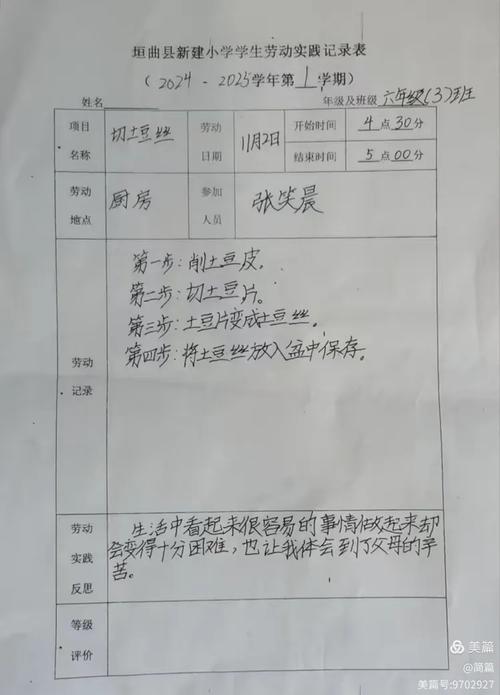 垣曲县新建小学学生劳动实践记录表
（2024-2025学年第1学期）
姓名 年级及班级 六年级(3)班班
项目名称 切土豆丝 劳动日期 11月2日 开始时间 4点30分
结束时间 5点00分
劳动地点 厨房 参加人员 张笑晨
劳动记录
第一步:削土豆皮。
第二步:切土豆片。
第三步:土豆片变成土豆丝。
第四步:将土豆丝放入盆中保存。
劳动实践反思
生活中看起来很容易的事情做起来却
会变得十分困难，也让我体会到了父母的辛
苦。
等级评价
美篇
@简篇
美篇号:9702927